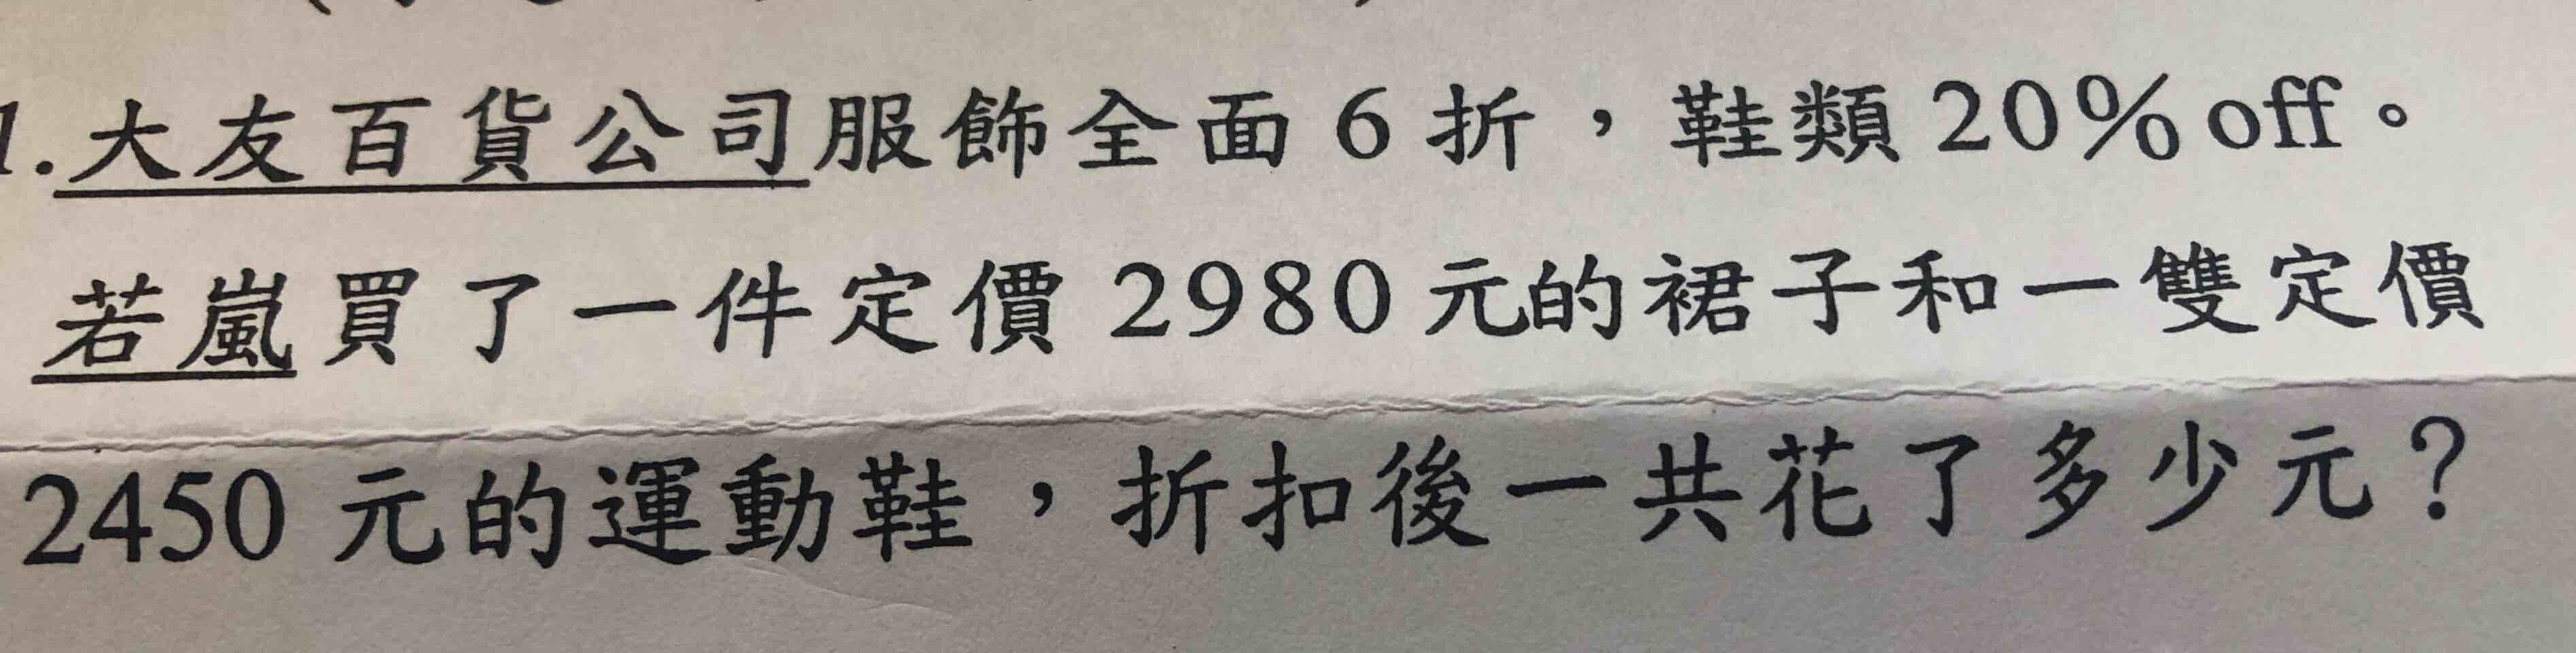 1.大友百貨公司服飾全面6折，鞋類20%off。
若嵐買了一件定價2980元的裙子和一雙定價
2450元的運動鞋，折扣後一共花了多少元？